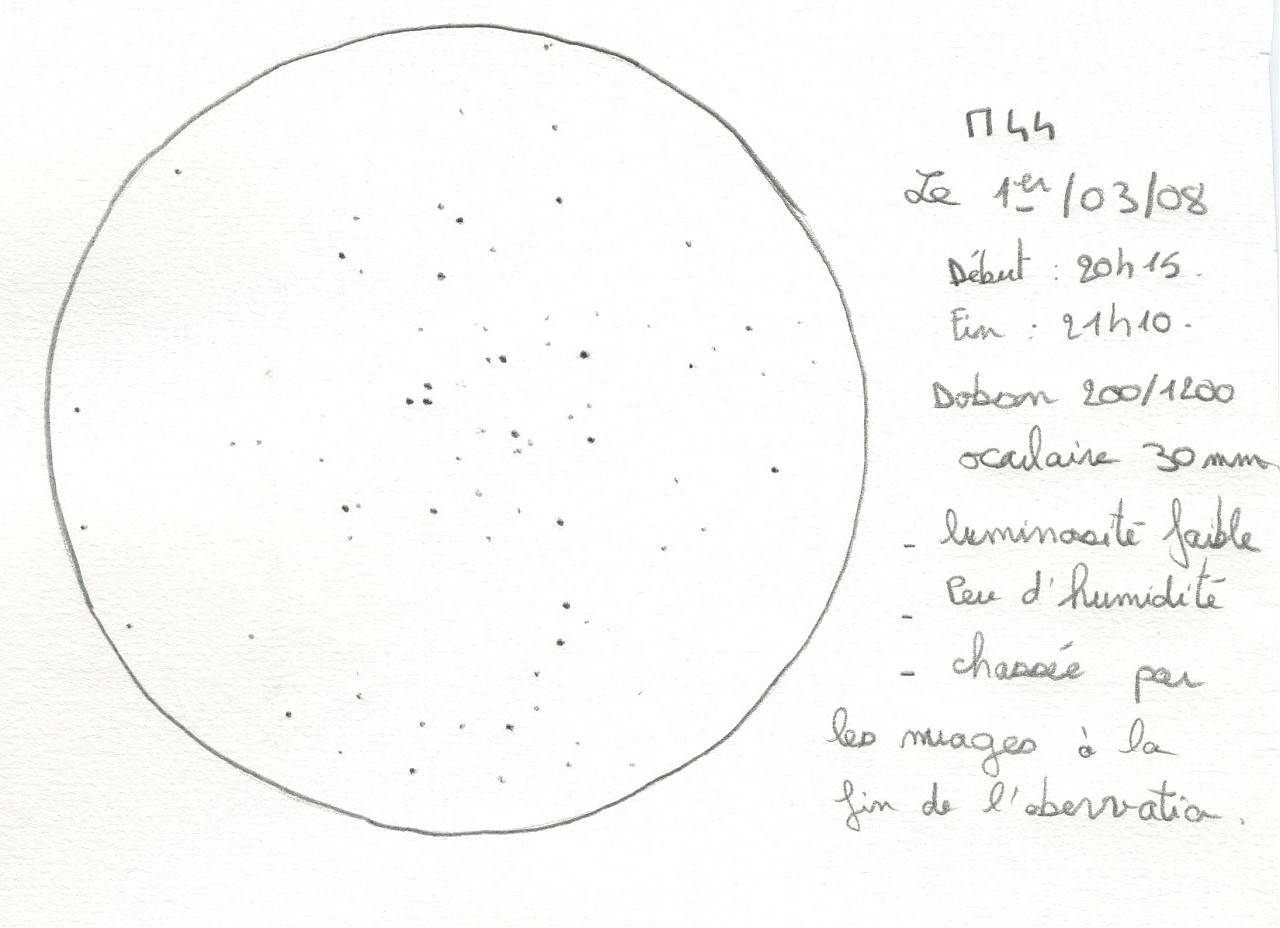 M44
Le 1er/03/08
Début : 20h15.
Fin : 21h10.
Dobson 200/1200
oculaire 30mm
- luminosité faible
- Peu d'humidité
- chassée par
les nuages à la
fin de l'obervation.